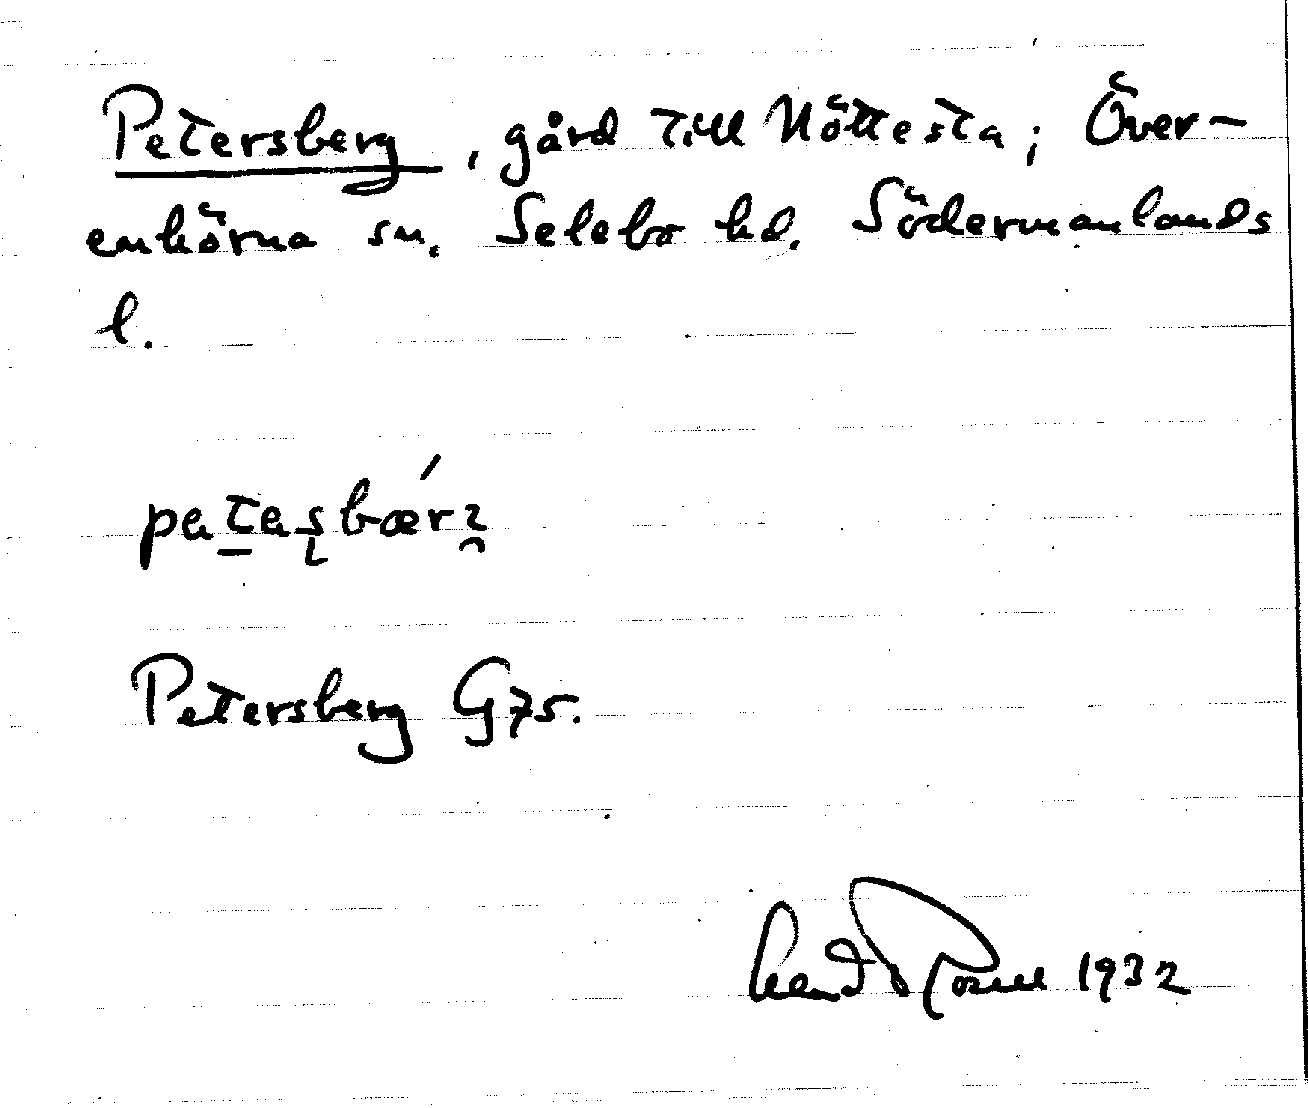 Petersberg, gård till Nöttesta; Över-
enhörna sn. Selebo hd. Södermanlands
l.
petas̨bǽrʒ
Petersberg G75.
1932